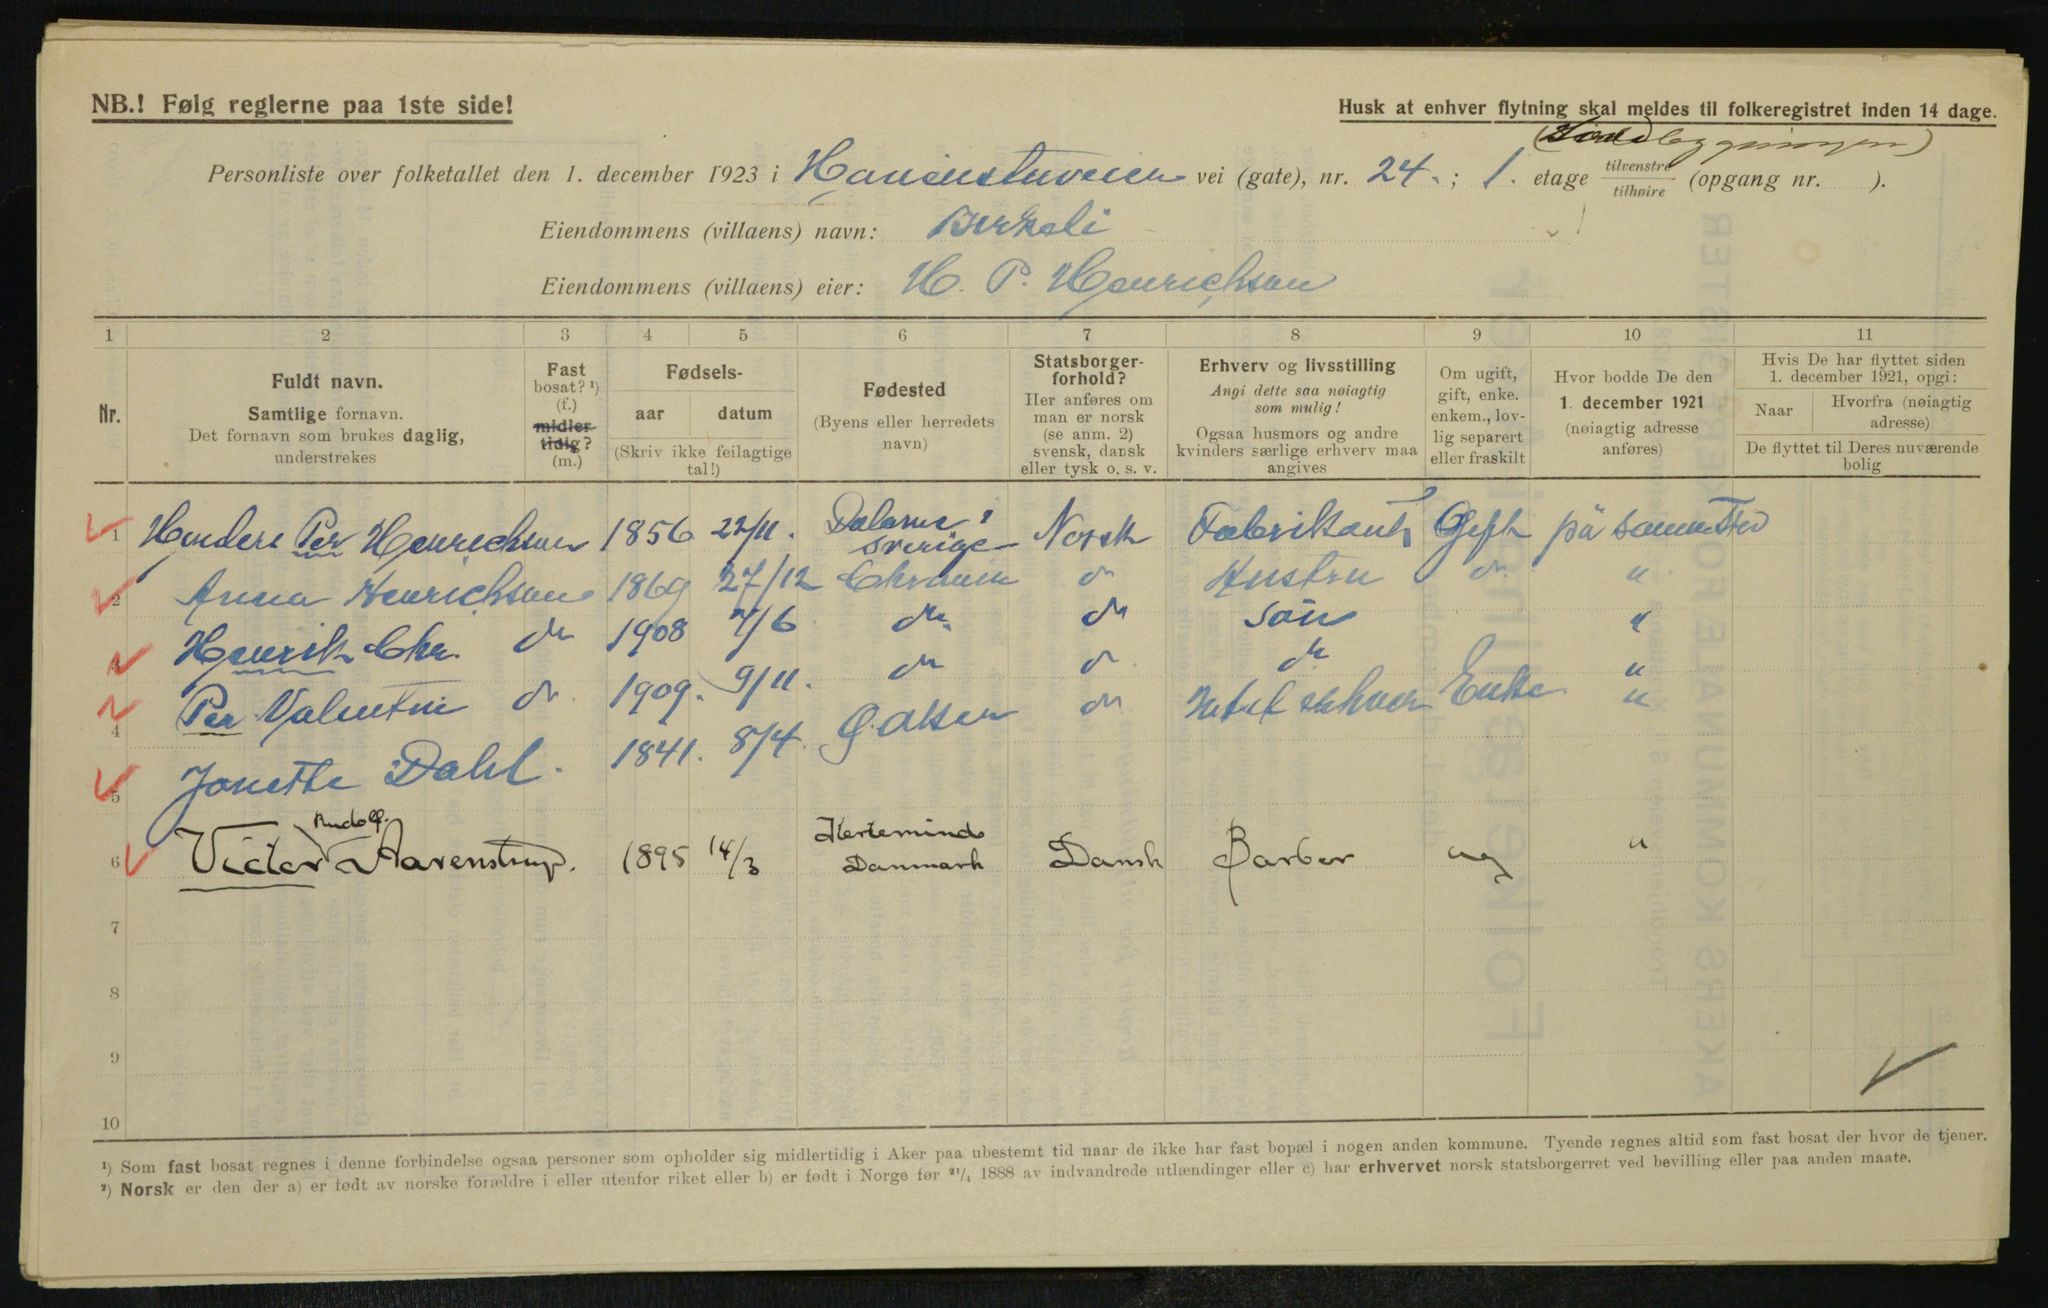 NB.! Følg reglerne paa 1ste side!
Husk at enhver flytning skal meldes til folkeregistret inden 14 dage.
Personliste over folketallet den 1. december 1923 i vei (gate), nr. 24. ; 1. etage tilvenstre tilhøire (opgang nr. ).
Eiendommens (villaens) navn: Birkeli
Eiendommens (villaens) eier: H. P. Henrichson
1 2 3 4 5 6 7 8 9 10 11
Nr.
Fuldt navn.
Samtlige fornavn.
Det fornavn som brukes daglig,
understrekes
Fast
bosat? ¹)
(f.)
midler-
tidig?
(m.)
Fødsels-
aar datum
(Skriv ikke feilagtige
tal!)
Fødested
(Byens eller herredets
navn)
Statsborger-
forhold?
Her anføres om
man er norsk
(se anm. 2)
svensk, dansk
eller tysk o. s. v.
Erhverv og livsstilling
Angi dette saa nøiagtig
som mulig!
Ogsaa husmors og andre
kvinders særlige erhverv maa
angives
Om ugift,
gift, enke.
enkem., lov-
lig separert
eller fraskilt
Hvor bodde De den
1. december 1921
(nøiagtig adresse
anføres)
Hvis De har flyttet siden
1. december 1921, opgi:
Naar Hvorfra (nøiagtig
adresse)
De flyttet til Deres nuværende
bolig
1 Per Henrichson 1856 22/11. Dalarne Sverige Norsk Fabrikant Gift på samme sted
2 Anna Henrichson 1869 27/12 Chrania do Hustru do "
3 Henrik Chr. do 1908 7/6 do do Søn "
4 Per Valentin do 1909. 9/11. do do do "
5 Jonette Dahl. 1841. 8/4. Ø. Aker do Intet erhverv Enke "
6 Victor Rudolf. Aarenstrup. 1895 14/3 Kerteminde Danmark Dansk Barber ug "
7
8
9
10
¹) Som fast bosat regnes i denne forbindelse ogsaa personer som opholder sig midlertidig i Aker paa ubestemt tid naar de ikke har fast bopæl i nogen anden kommune. Tyende regnes altid som fast bosat der hvor de tjener.
²) Norsk er den der a) er født av norske forældre i eller utenfor riket eller b) er født i Norge før ²¹/₄ 1888 av indvandrede utlændinger eller c) har erhvervet norsk statsborgerret ved bevilling eller paa anden maate.